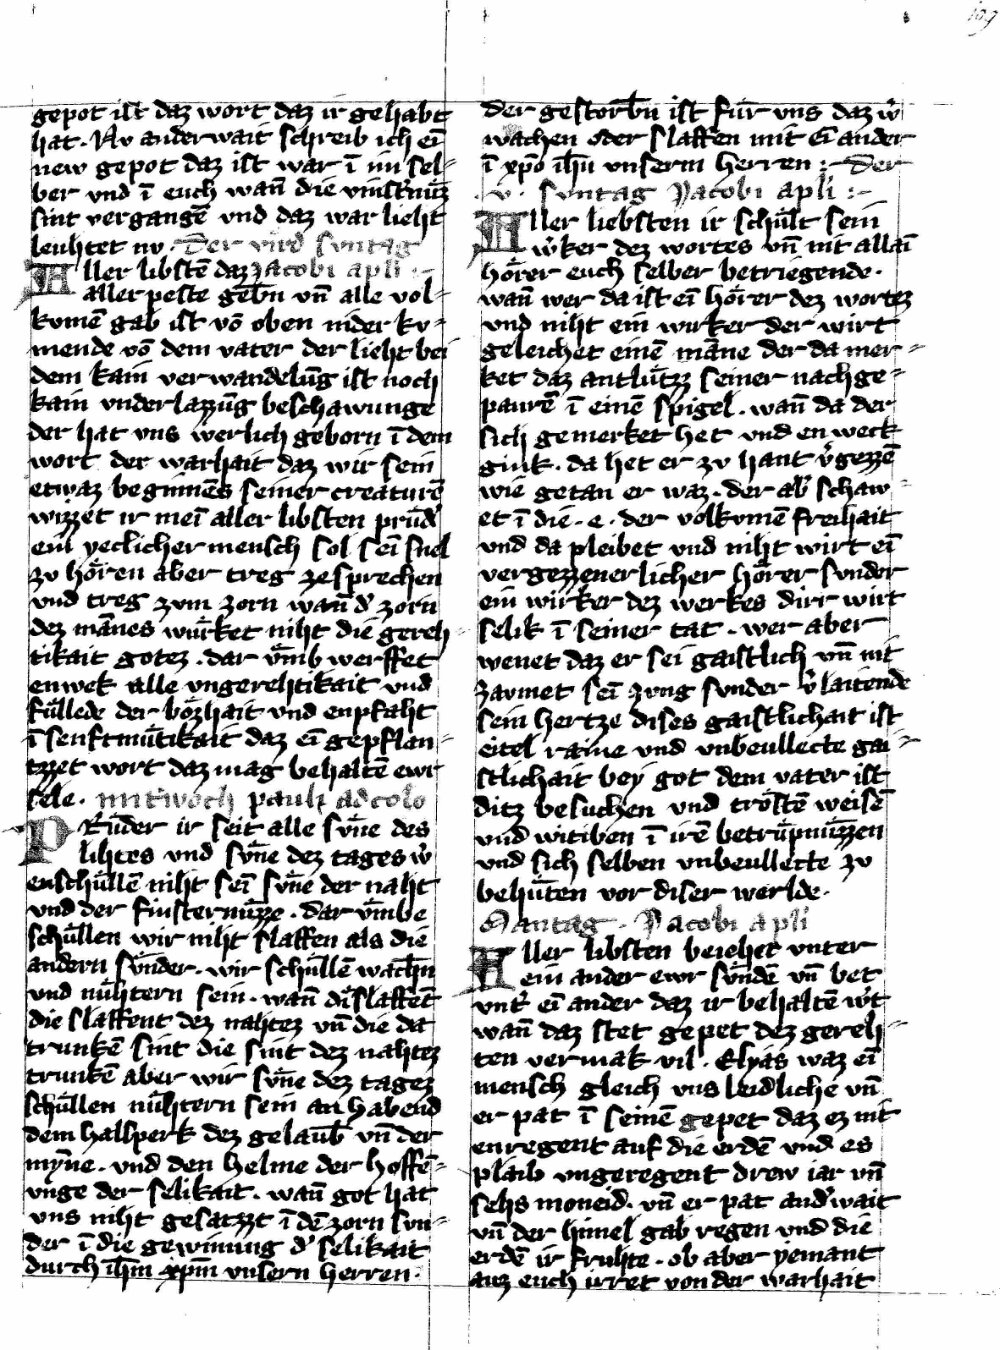 109
gepot ist daz wort daz ir gehabt
hat. Nv anderwait schreib ich eī
new gepot daz ist war ī im sel-
ber vnd ī euch wan̄ die vinst'nüz
sint vergangē vnd daz war lieht
leuhtet nv. Der vird svntag
Aller libstē daz Jacobi apli :-
aller peste gebn̄ vn̄ alle vol-
kvmē gab ist vō oben nider kv-
mende vō dem vater der lieht bei
dem kain verwandelūg ist noch
kain vnderlazzūg beschawunge
der hat vns werlich geborn ī dem
wort der warhait daz wir sein
etwaz beginnēs seiner creaturē
wizzet ir mei aller libsten prūd'
ein yeclicher mensch sol sei snel
zv hören aber treg ze sprechen
vnd treg zvm zorn wan̄ d' zorn
dez mānes würket niht die gereh
tikait gotez. dar v̄mb werffet
enwek alle vngerehtikait vnd
füllede der bözhait vnd enpfaht
ī senftmütikait daz eī gepflan-
tzzet wort daz mag behaltē ewr
sele. mitwoch pauli ad colo
Prüder ir seit alle svn̄e des
lihtes vnd svn̄e dez tages w'
enschüllē niht sei svn̄e der naht
vnd der finsternüzze. dar v̄mbe
schüllen wir niht slaffen als die
andern svnder. wir schüllē wachn̄
vnd nühtern sein. wan̄ di' slaffent
die slaffent dez nahtez vn̄ die da
trunkē sint die sint dez nahtez
trunkē aber wir svn̄e dez tagez
schüllen nühtern sein an habend
dem halsperk dez gelaub̄ vn̄ der
myn̄e. vnd den helme der hoffē-
vnge der selikait. wan̄ got hat
vns niht gesatzzt ī dē zorn svn-
der ī die gewinung d' selikait
durch ih̄m xp̄m vnsern herren.
der gestorbn̄ ist für vns daz w'
wachen oder slaffen mit ein ander
ī xp̄o ih̄u vnserm herren :- Der
v. svntag Jacobi apli :-
Aller liebsten ir schült sein
w'ker dez wortes vn̄ nit allaī
hörer euch selber betriegende.
wan̄ wer da ist eī hörer dez wortez
vnd niht ein wirker der wirt
geleichet einē māne der da mer-
ket daz antlützz seiner nachge-
paurē ī einē spigel. wan̄ da der
sich gemerket het vnd en weck
gink. da het er zv hant v'gezzē
wie getan er waz. der ab' schaw-
et ī die. e. der volkvmē freihait
vnd da pleibet vnd niht wirt eī
vergezzenerlicher hörer svnder
ein würker dez werkes dirr wirt
selik ī seiner tat. wer aber
wenet daz er sei gaistlich vn̄ nit
zavmet sei zvng svnder v'laitende
sein hertze dises gaistlichait ist
eitel raine vnd vnbeullecte gai-
stlichait bey got dem vater ist
ditz besuchen vnd tröstē weisē
vnd witiben ī irē betrüpnüzzen
vnd sich selben vnbeullecte zv
behüten vor diser werlde.
Mantag. Jacobi apli
Aller libsten beiehet vnter
ein ander ewr svndē vn̄ bet
vnt' eī ander daz ir behaltē w't
wan̄ daz stet gepet dez gereh-
ten vermak vil. Elyas waz eī
mensch gleich vns leidliche vn̄
er pat ī seinē gepet daz ez nit
enregent auf die erdē vnd es
plaib vngeregent drew iar vn̄
sehs moneid. vn̄ er pat and'wait
vn̄ der himel gab regen vnd die
erdē ir fruhte. ob aber yemant
auz euch irret von der warhait